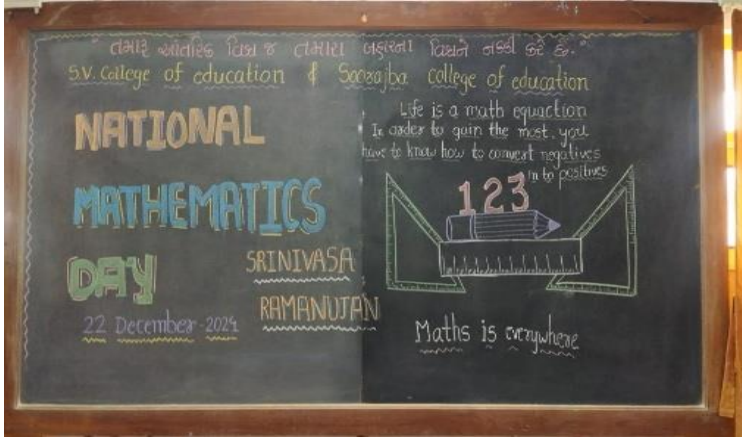 " તમારૂ આંતરિક વિશ્વ જ તમારા બહારના વિશ્વને નક્કી કરે છે."
S.V. College of education & Soorajba college of education
NATIONAL
MATHEMATICS
DAY
22 December - 2024
SRINIVASA
RAMANUJAN
Life is a math equaction
In order to gain the most, you
have to know how to convert negatives
in to positives
123
Maths is everywhere